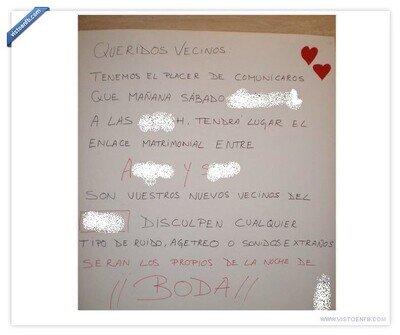 vistoenfb.com
QUERIDOS VECINOS:
TENEMOS EL PLACER DE COMUNICAROS
QUE MAÑANA SÁBADO
A LAS H. TENDRÁ LUGAR EL
ENLACE MATRIMONIAL ENTRE
A Y S
SON VUESTROS NUEVOS VECINOS DEL
DISCULPEN CUALQUIER
TIPO DE RUIDO, AGETREO O SONIDOS EXTRAÑOS
SERAN LOS PROPIOS DE LA NOCHE DE
¡¡ BODA !!
WWW.VISTOENFB.COM